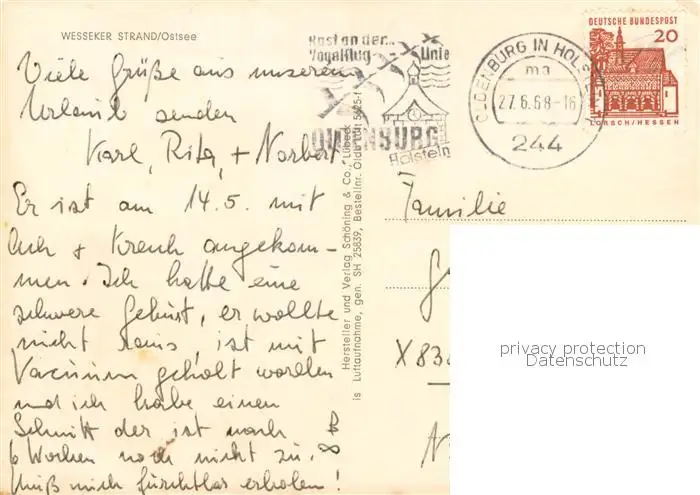 WESSEKER STRAND/Ostsee
Viele Grüße aus unserem
Urlaub senden
Karl, Rita, + Norbert
Er ist am 14.5. mit
Ach + Krach angekom-
men. Ich hatte eine
schwere Geburt, er wollte
nicht raus, ist mit
Vacuum geholt worden
und ich habe einen
Schnitt der ist nach
6 Wochen noch nicht zu.
Muß mich furchtbar erholen!
Hersteller und Verlag Schöning & Co., Lübeck
is Luftaufnahme, gen. SH 25839, Bestellnr. Olde Luft 5625-f
Rast an der...
Vogelflug Linie
OLDENBURG
Holstein
OLDENBURG IN HOLSTEIN
ma
27.6.68-16
244
DEUTSCHE BUNDESPOST
20
LORSCH/HESSEN
Familie
X 83
privacy protection
Datenschutz